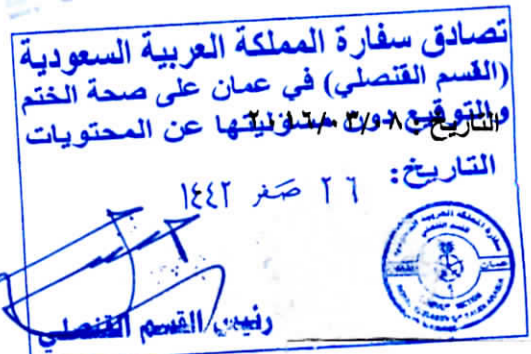 تصادق سفارة المملكة العربية السعودية
(القسم القنصلي) في عمان على صحة الختم
والتوقيع دون مسؤوليتها عن المحتويات
التاريخ: ٢٠١٦/٠٣/٠٨
التاريخ: ٢٦ صفر ١٤٤٢
رئيس القسم القنصلي